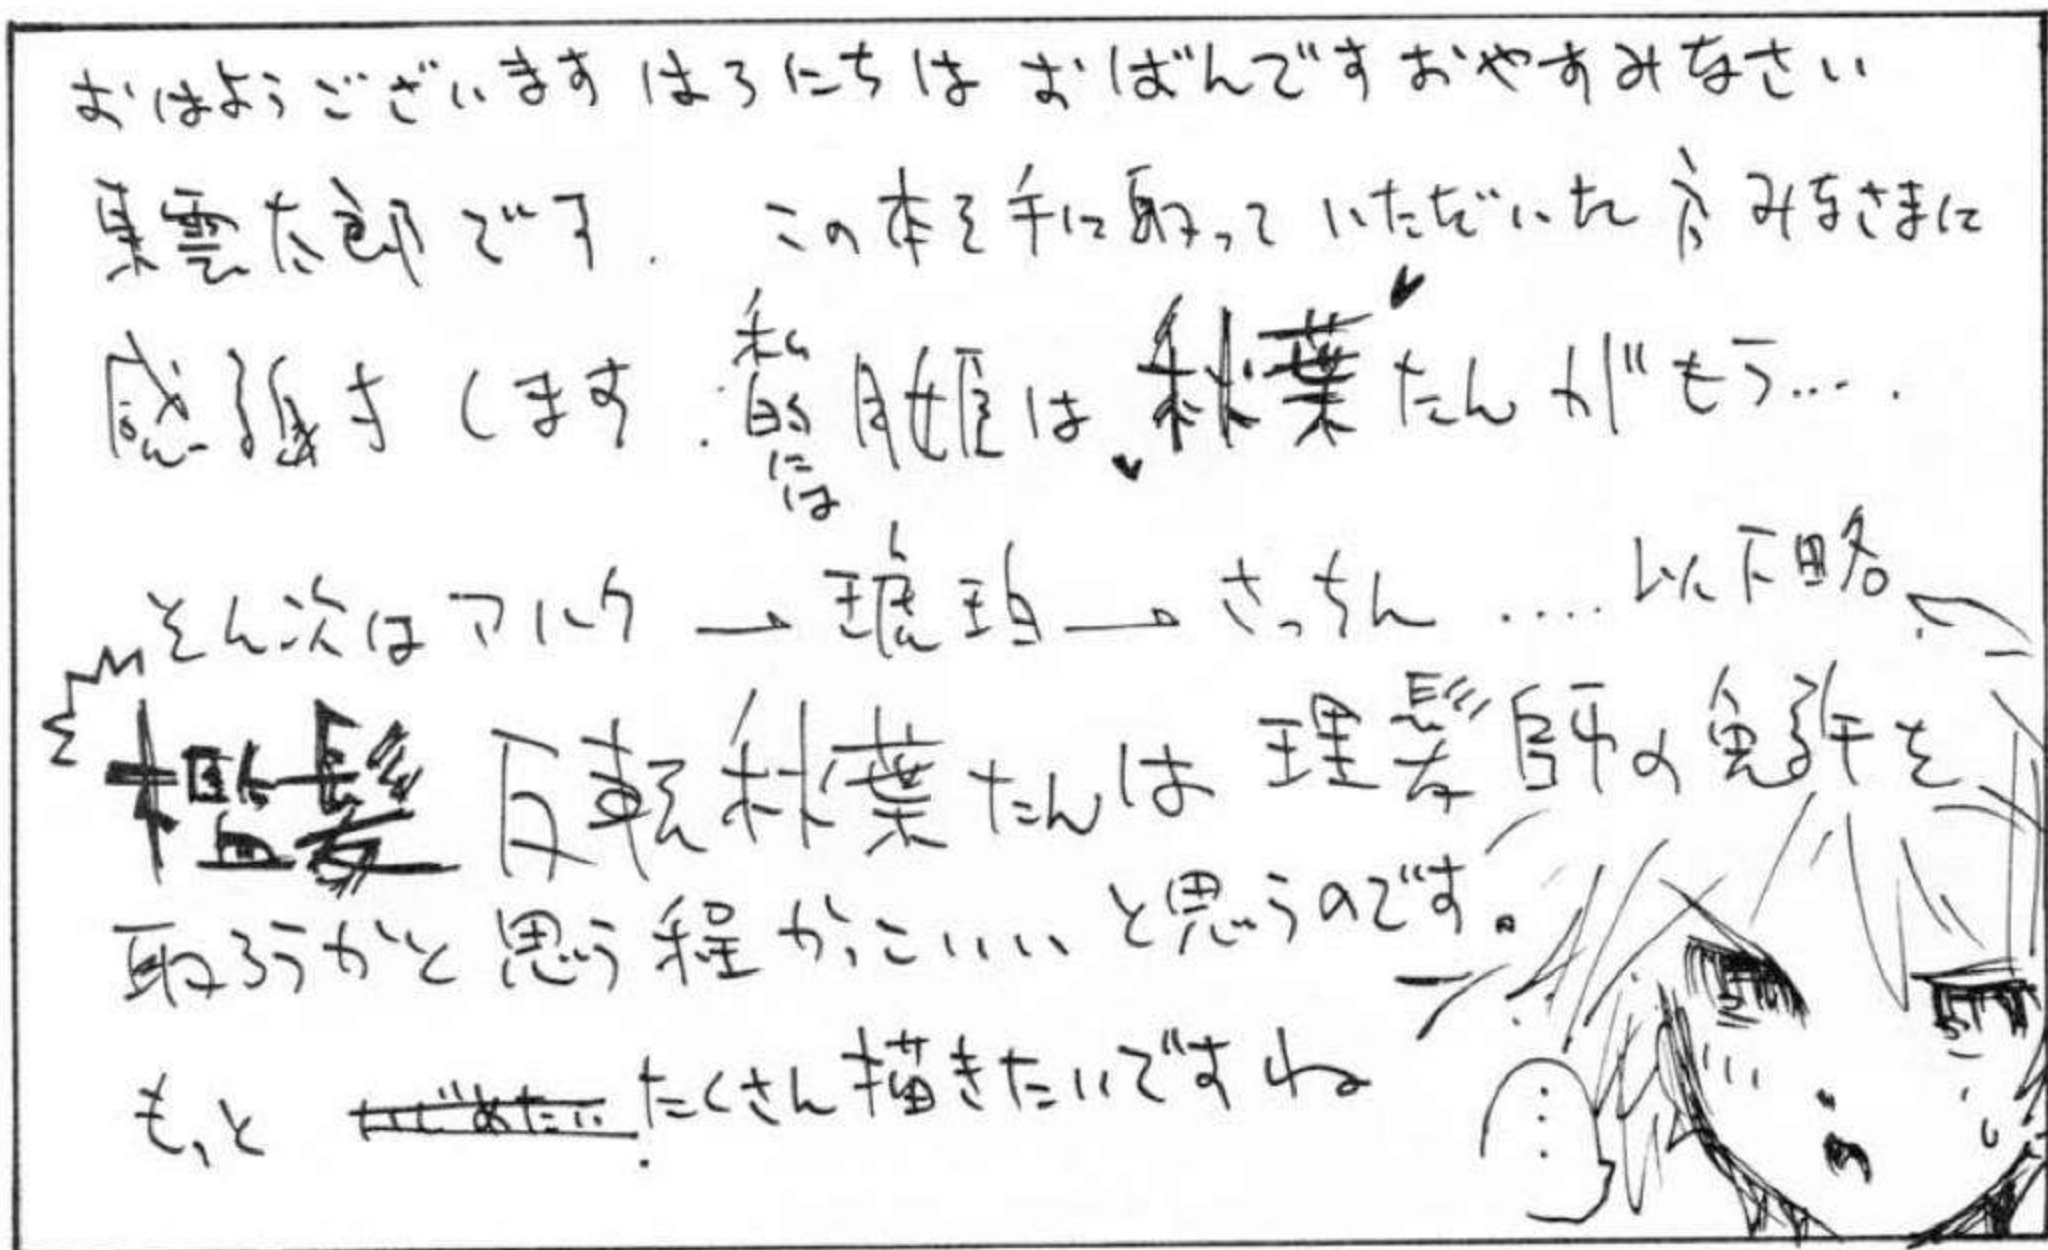 おはようございますはろにちはおばんですおやすみなさい
東雲太郎です. この本を手に取っていただいた方みなさまに
感強きします. 私的には 月姫は 秋葉たんがもう….
そん次はアルク→琥珀→さっちん …. 以下略
檻髪 反転秋葉たんは 理髪師の免許を
取ろうかと思う程かっこいいいと思うのです。
もっと いじめたい たくさん描きたいですね
…